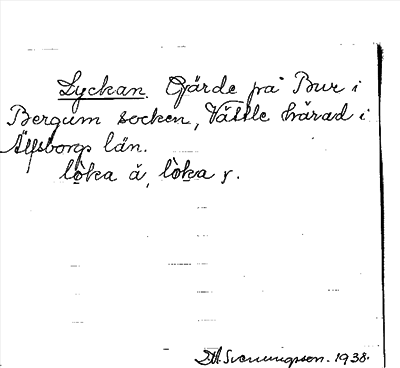 Lyckan. Gärde på Bur i
Bergum socken, Vättle härad i
Älfsborgs län.
lo̩ka å, lò̩ka r.
Svenungsson. 1938.